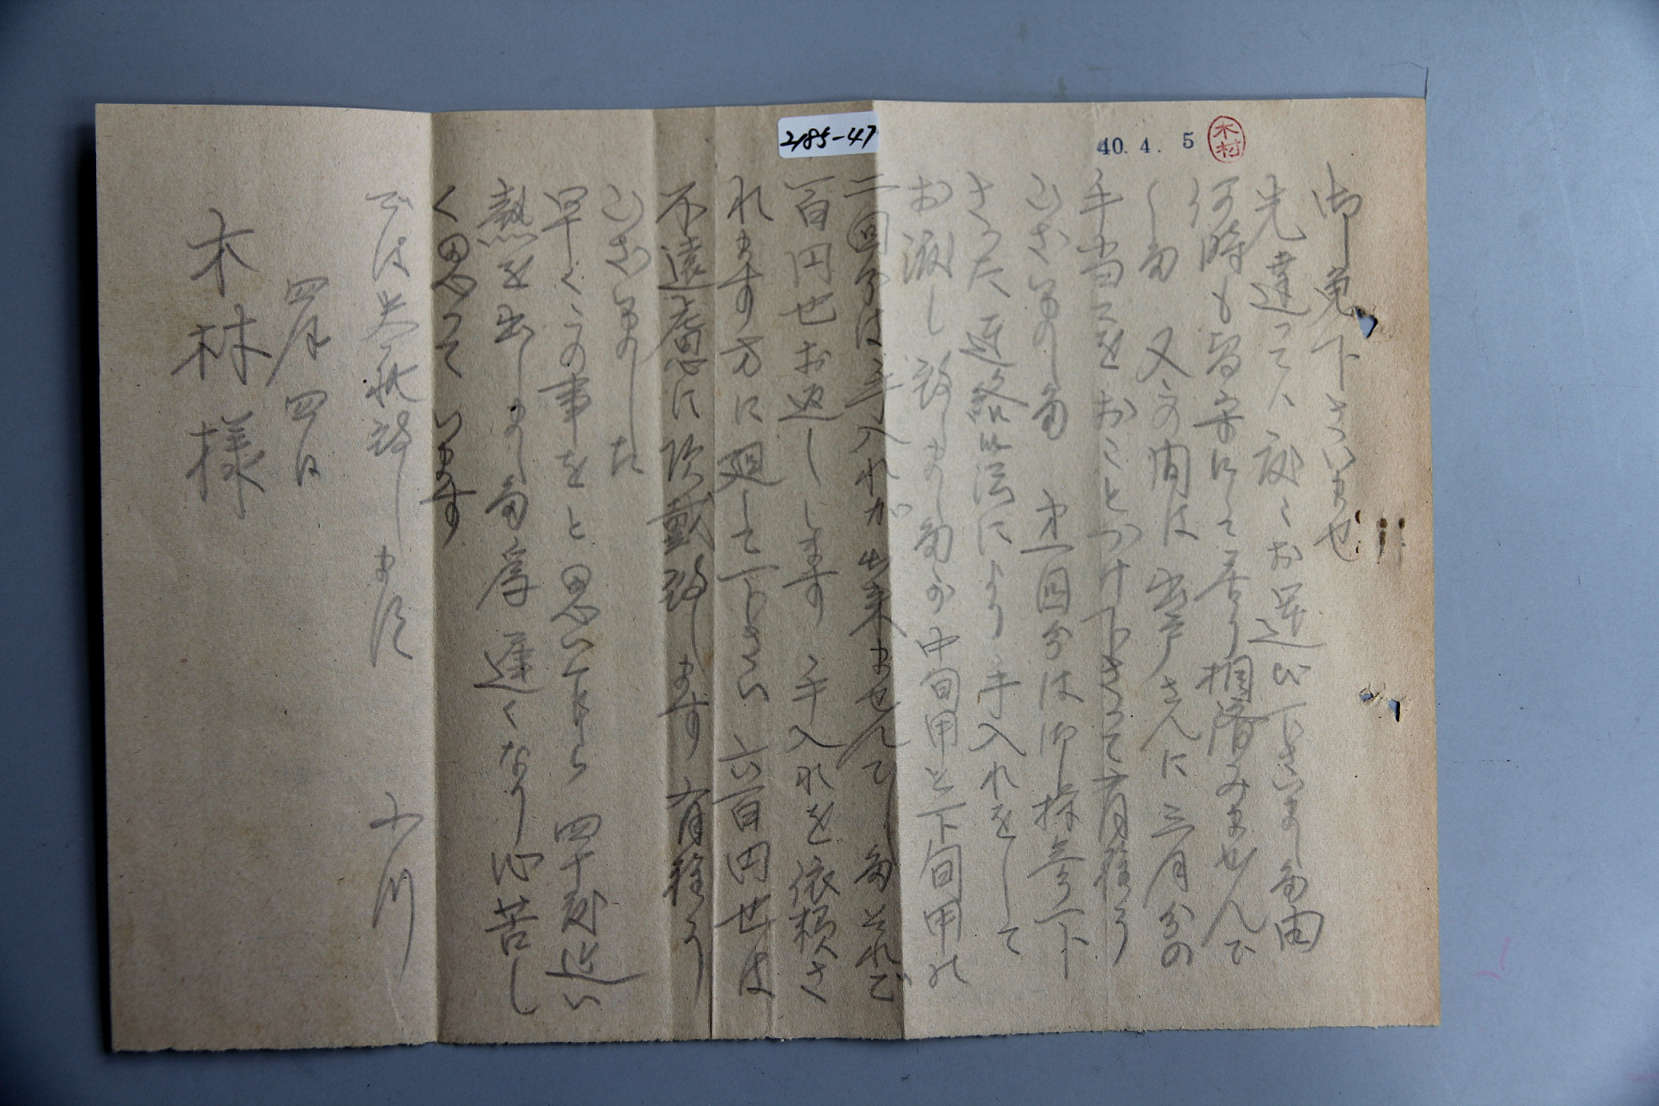 2185-47
40.4.5
木村
御免下さいませ
先達って、度々お運び下さいまし由
何時も留守にして居り相済みませんで
し 又その間は 出戸さんに三月分の
手当てをおことづけ下さって有難う
ございまし 第一回分は御持参下
さった連絡法により 手入れをして
お渡し致しましが中旬甲と下旬甲の
二回分は手入れが出来ませんでし それで
一百円也お返しします 手入れを依頼さ
れます方に廻して下さい 六百円也は
不遠慮に頂戴致します 有難う
ございました
早くこの事をと思い 四十度近い
熱を出しまし 遅くなり心苦し
く思っています
では 失礼致します 小川
四月四日
木林様